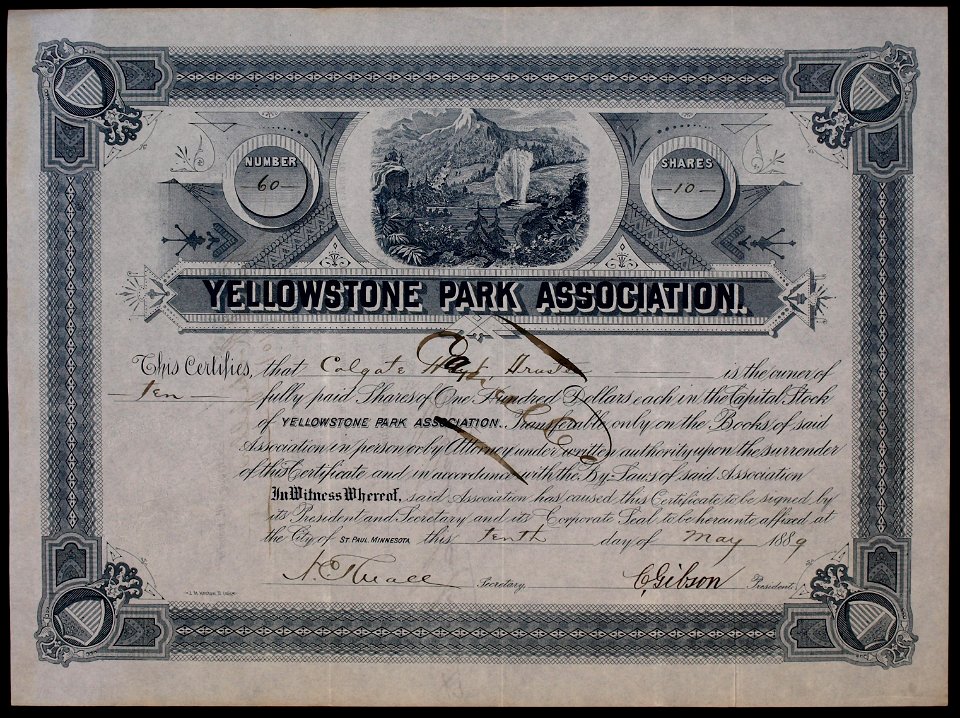 NUMBER
60
SHARES
10
YELLOWSTONE PARK ASSOCIATION.
This Certifies, that Colgate Hoyt, Trustee is the owner of
ten fully paid Shares of One Hundred Dollars each in the Capital Stock
of YELLOWSTONE PARK ASSOCIATION. Transferable only on the Books of said
Association in person or by Attorney under written authority upon the surrender
of this Certificate and in accordance with the By-Laws of said Association
In Witness Whereof, said Association has caused this Certificate to be signed by
its President and Secretary and its Corporate Seal to be hereunto affixed at
the City of ST. PAUL, MINNESOTA, this tenth day of May 1889
Secretary. C Gibson President.